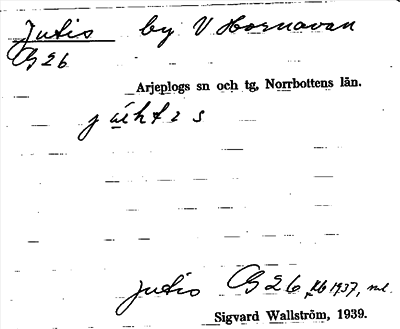 Jutis by V Hornavan
G26
Arjeplogs sn och tg, Norrbottens län.
Jutis G26, kb 1937, nl.
Sigvard Wallström, 1939.